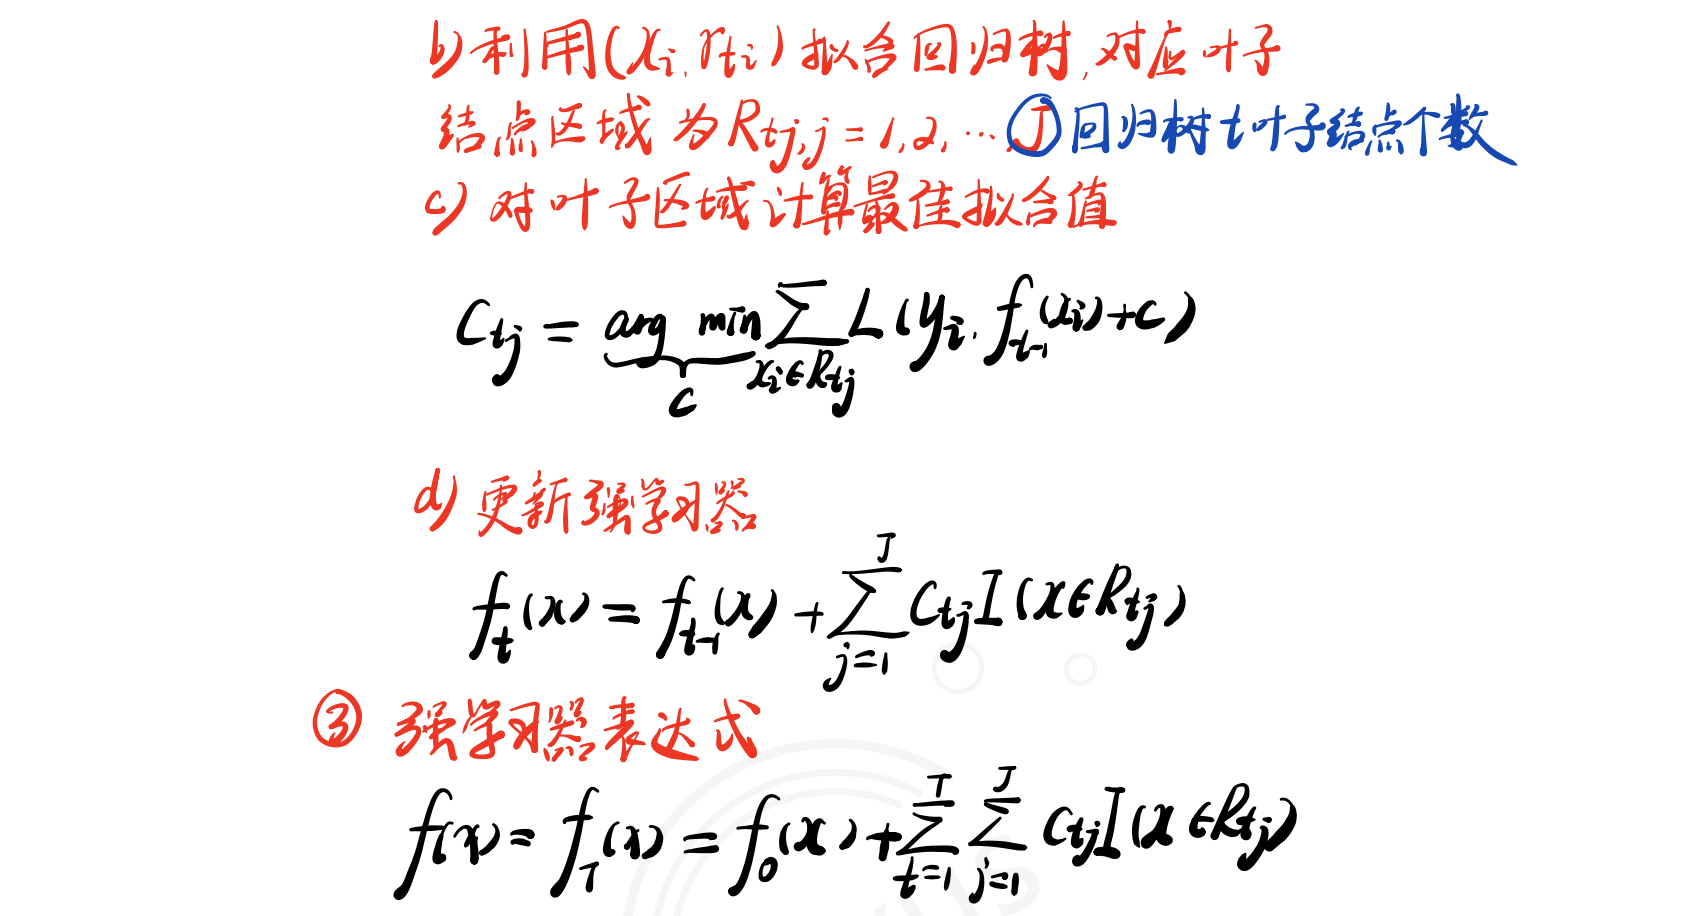 b) 利用(xᵢ, rₜᵢ) 拟合回归树, 对应叶子
结点区域为 Rₜⱼ, j = 1, 2, … J 回归树t叶子结点个数
c) 对叶子区域计算最佳拟合值
C_{tj} = arg min_{c} ∑_{xᵢ∈R_{tj}} L(yᵢ, f_{t-1}(xᵢ)+c)
d) 更新强学习器
f_t(x) = f_{t-1}(x) + ∑_{j=1}^{J} C_{tj} I(x∈R_{tj})
③ 强学习器表达式
f(x) = f_T(x) = f_0(x) + ∑_{t=1}^{T} ∑_{j=1}^{J} C_{tj} I(x∈R_{tj})